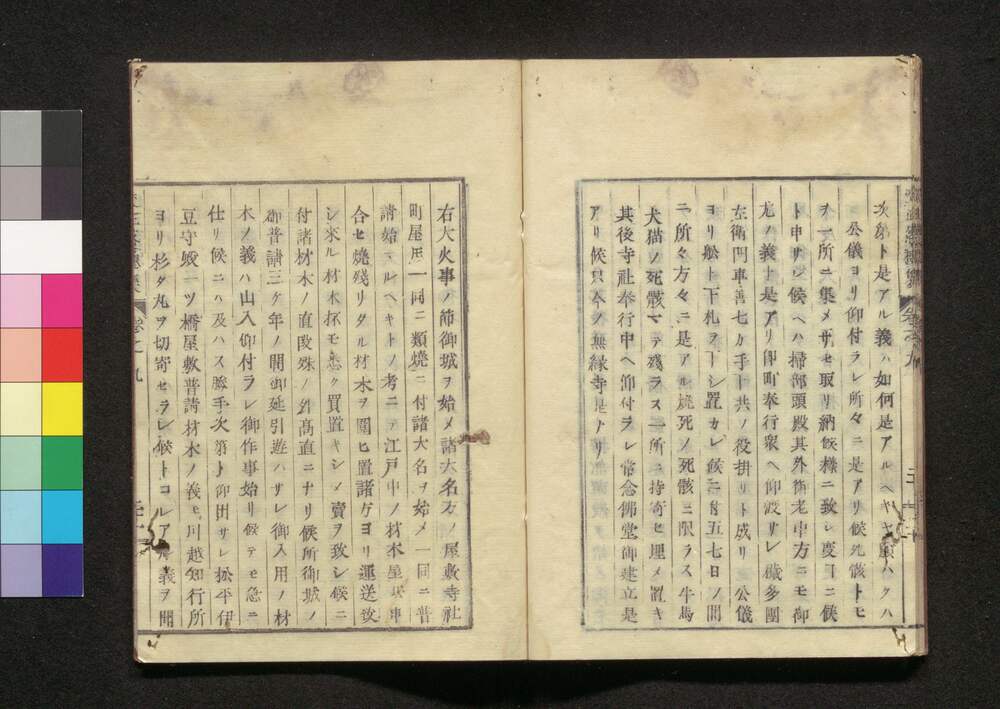 次第ト是アル義ハ如何是アルヘキヤ願ハクハ
公儀ヨリ仰付ラレ所々ニ是アリ候死骸トモ
ヲ一所ニ集メサセ取リ納候様ニ致シ度ヨシニ候
ト申サレ候ヘハ掃部頭殿其外御老中方ニモ御
尤ノ義ト是アリ即町奉行衆ヘ仰渡サレ穢多團
左衛門車善七カ手下共ノ役掛リト成リ公儀
ヨリ舩ト下札ヲ下シ置カレ候ニ付五七日ノ間
ニ所々方々ニ是アル焼死ノ死骸ニ限ラス牛馬
犬猫ノ死骸マテ残ラス一所ニ持寄セ埋メ置キ
其後寺社奉行中ヘ仰付ラレ常念佛堂御建立是
アリ候只今ノ無縁寺是ナリ
右大火事ノ節御城ヲ始メ諸大名方ノ屋敷寺社
町屋圧一同ニ類焼ニ付諸大名ヲ始メ一同ニ普
請始マルヘキトノ考ニテ江戸中ノ材木屋共申
合セ焼残リタル材木ヲ圍ヒ置諸方ヨリ運送致
シ來ル材木抔モ悉ク買置キシメ賣ヲ致シ候ニ
付諸材木ノ直段殊ノ外髙直ニナリ候所御城ノ
御普請三ケ年ノ間御延引遊ハサレ御入用ノ材
木ノ義ハ山入仰付ラレ御作事始リ候テモ急ニ
仕リ候ニハ及ハス勝手次第ト仰出サレ松平伊
豆守殿一ツ橋屋敷普請材木ノ義モ川越知行所
ヨリ杉タ丸ヲ切寄セラレ候トコレアル義ヲ聞
巻之九